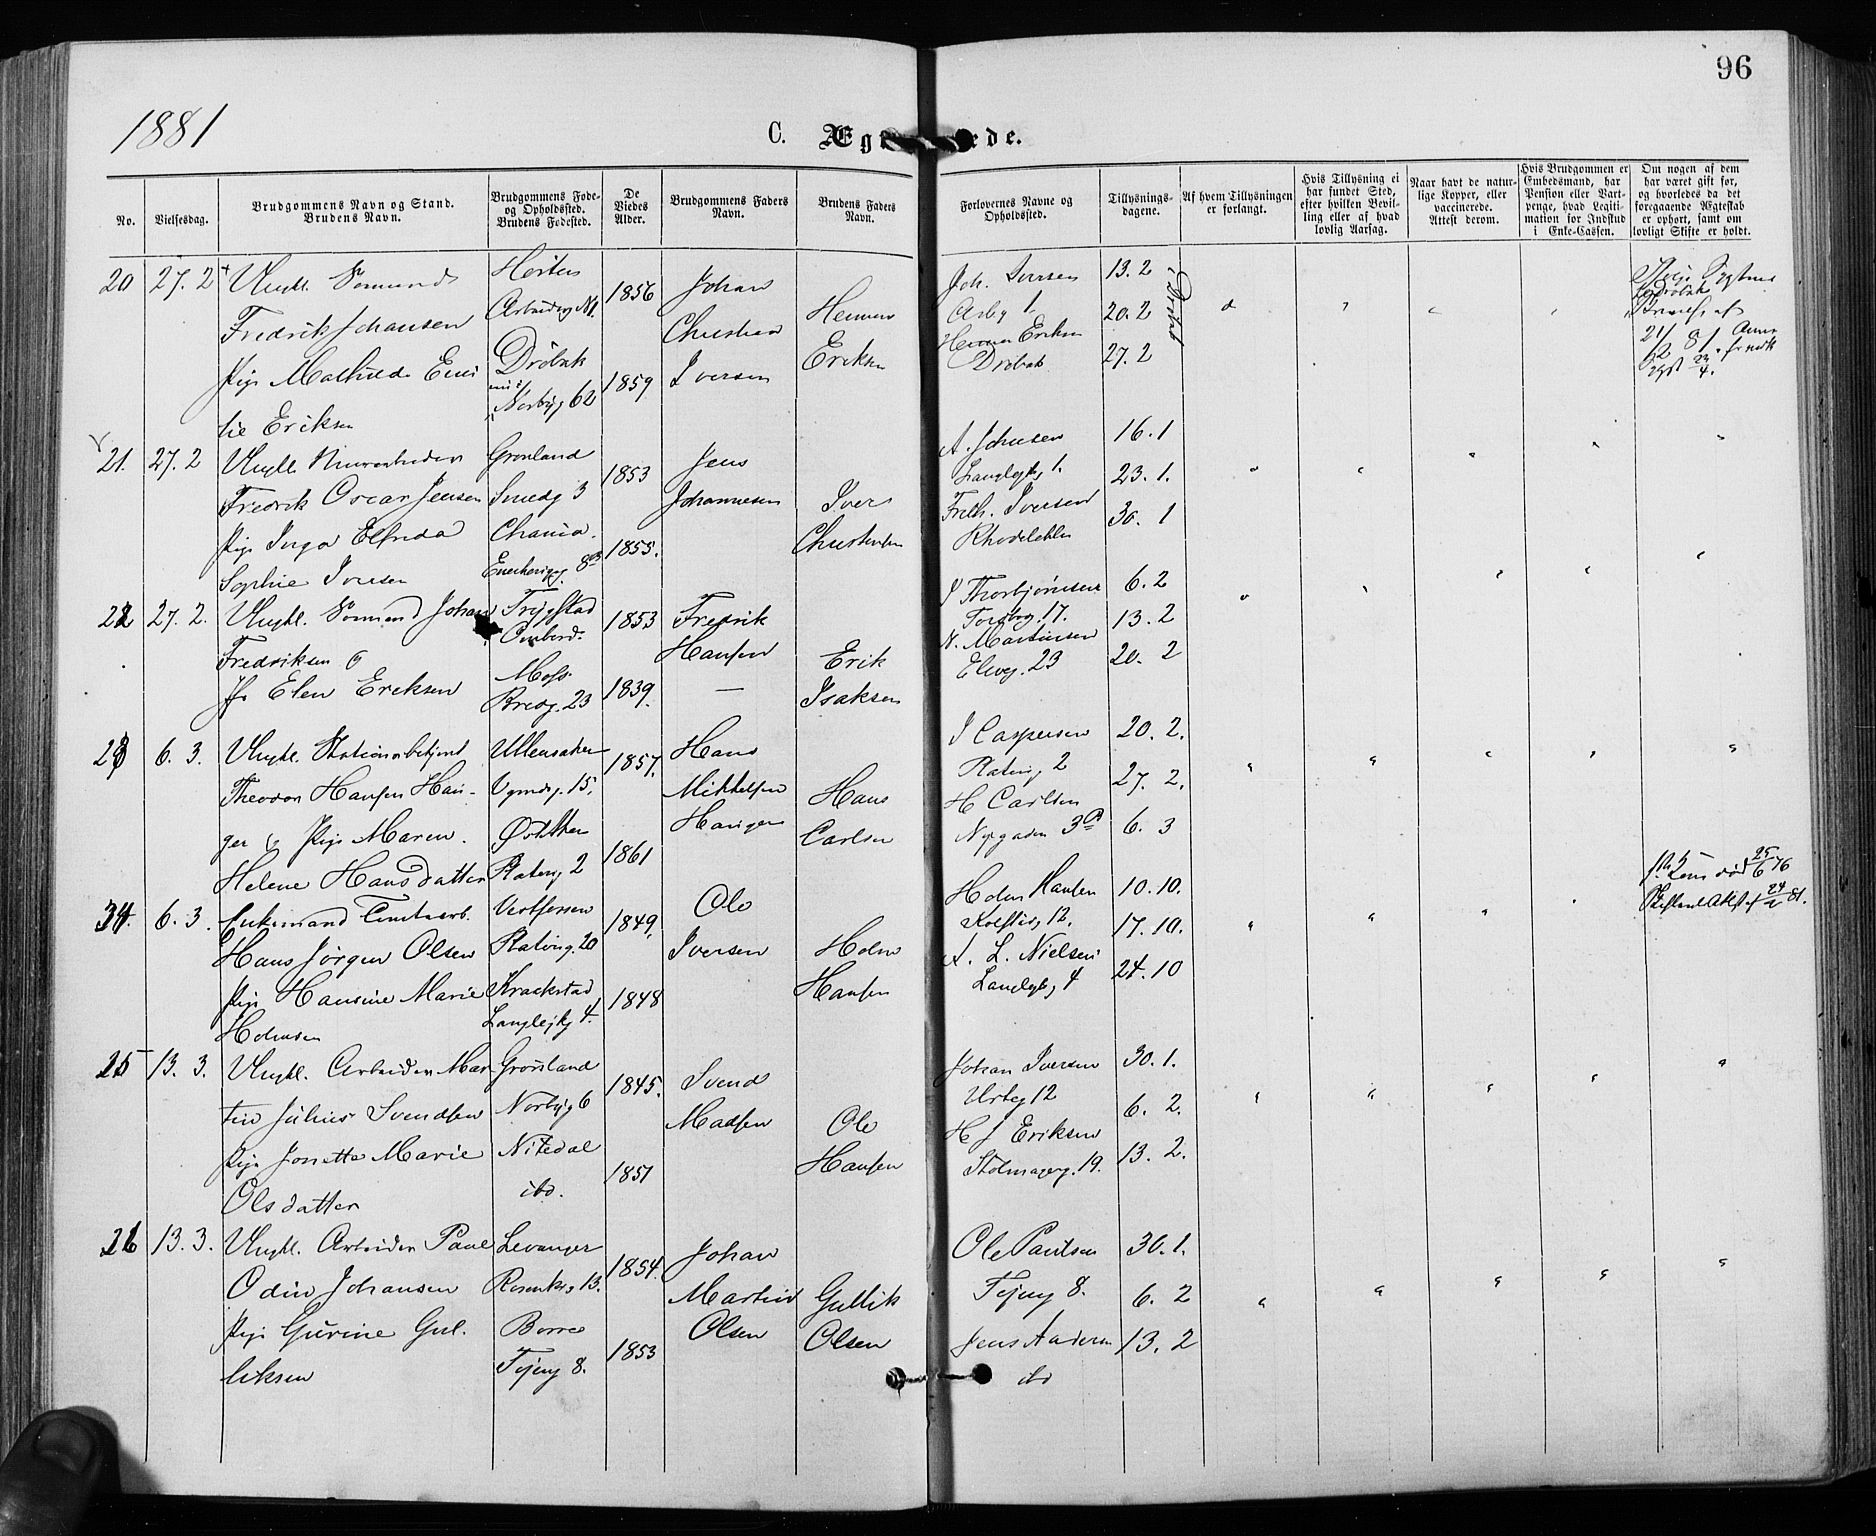 96
1881
C. Æg ede.
No.
Vielsesdag.
Brudgommens Navn og Stand.
Brudens Navn.
Brudgommens Føde-
og Opholdssted.
Brudens Fødested.
De
Viedes
Alder.
Brudgommens Faders
Navn.
Brudens Faders
Navn.
Forlovernes Navne og
Opholdssted.
Tillysnings-
dagene.
Af hvem Tillysningen
er forlangt.
Hvis Tillysning ei
har fundet Sted,
efter hvilken Bevil-
ling eller af hvad
lovlig Aarsag.
Naar havt de natur-
lige Kopper, eller
vaccinerede.
Attest derom.
Hvis Brudgommen er
Embedsmand, har
Pension eller Vart-
penge, hvad Legiti-
mation for Indskud
i Enke-Cassen.
Om nogen af dem
har været gift før,
og hvorledes da det
foregaaende Ægteskab
er ophørt, samt om
lovligt Skifte er holdt.
20 27. 2 Ungkl. Sømand
Fredrik Johansen
Pige Mathilde Emi
lie Eriksen
Horten
Drøbak
Norbyg 62
1856
1859
Johan
Christian
Iversen
Herman
Eriksen
Joh. Iversen
Herman Eriksen
Drøbak
13. 2
20. 2
27. 2
Drøbak
21. 27. 2 Ungkl. Murarbeider
Fredrik Oscar Jensen
Pige Inga Elfrida
Sophie Iversen
Grønland
Smedg 3
Chania.
Enerhaugg. 8
1853
1855.
Jens
Johannesen
Iver
Christensen
A. Johnsen
Langleikg 1.
Fredh. Iversen
Rhodeløkken
16. 1
23. 1.
30. 1
22 27. 2. Ungkl. Sømand Johan
Fredriksen og
Pige Elen Eriksen
Trygstad
Ombord.
Moss.
Bredg. 23
1853
1839.
Fredrik
Hansen
—
Erik
Isaksen
I Thorbjørnsen
Tordbg. 17.
N. Martinsen
Elveg. 23
6. 2
13. 2
20. 2
23 6. 3. Ungkl. Stationsbetjent
Theodor Hansen Hau-
ger og Pige Maren
Helene Hansdatter
Ullensaker
15.
Platoug 2
1857.
1861
Hans
Mikkelsen
Hauger
Hans
Carlsen
I Caspersen
Platoug 2
H Carlsen
Nygaden 3
20. 2.
27. 2.
6. 3
24. 6. 3. Enkemand Tomtearb.
Hans Jørgen Olsen
Pige Hansine Marie
Holmsen
Vestfossen
Platoug. 20
Kraakstad
Langleikg 4.
1849.
1848
Ole
Iversen
Holm
Hansen
Holm Hansen
Kolstadg 12.
A. L. Nielsen
Langleikg 4
10. 10.
17. 10.
24. 10
25 13. 3. Ungkl. Arbeider Mar
tin Julius Svendsen
Pige Jonette Marie
Olsdatter
Grønland
Norbyg 6
Nitedal
ibd.
1845.
1851
Svend
Madsen
Ole
Hansen
Johan Iversen
Urteg 12
H J Eriksen
Stolmagerg. 19.
30. 1.
6. 2.
13. 2.
26 13. 3. Ungkl. Arbeider Paul
Odin Johansen
Pige Gurine Gul.
liksen
Levanger
Rosenkrg 13.
Borre
Tøjeng 8.
1854.
1853
Johan
Martin
Olsen
Gullik
Olsen
Ole Paulsen
Tøjeng 8.
Jens Andersen
ibd
30. 1.
6. 2
13. 2